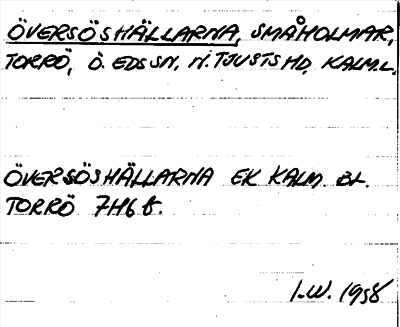 ÖVERSÖSHÄLLARNA, SMÅHOLMAR,
TORRÖ, Ö. EDS SN, N. TJUSTS HD, KALM.L.
ÖVERSÖSHÄLLARNA EK KALM. BL.
TORRÖ 7H6b.
I.W. 1958